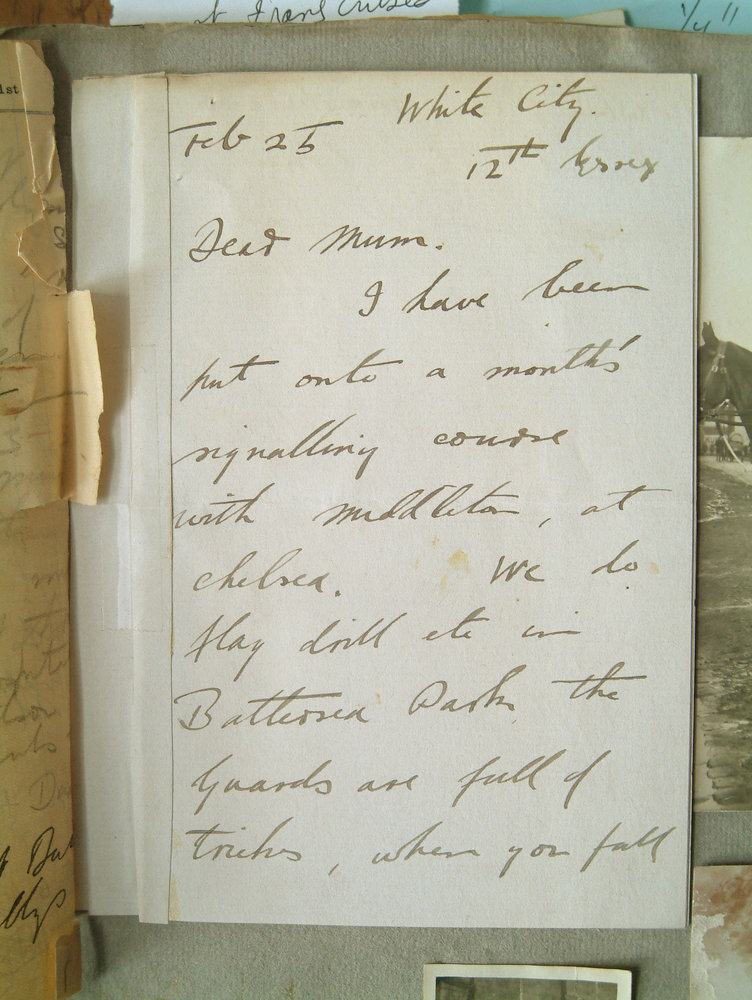 t Transcribed
1/4"
1st
White City.
Feb 25
12th Essex
Dear Mum.
I have been
put onto a month's
signalling course
with Middleton, at
Chelsea. We do
flag drill etc in
Battersea Park, the
Guards are full of
tricks, when you fall